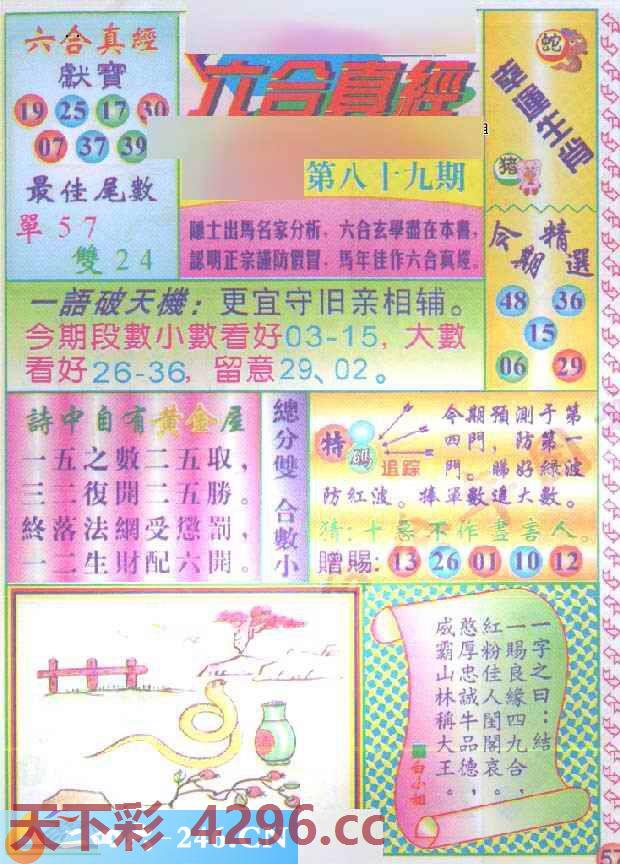 六合真經
獻寶
19 25 17 30
07 37 39
最佳尾數
單 5 7
雙 2 4
六合真經
第八十九期
隱士出馬名家分析，六合玄學盡在本書，
認明正宗謹防假冒，馬年佳作六合真經。
蛇
猪
今期精選
48 36
15
06 29
一語破天機：更宜守旧亲相辅。
今期段數小數看好03-15，大數
看好26-36，留意29、02。
詩中自有黃金屋
一五之數二五取，
三二復開二五勝。
終落法網受懲罰，
一二生財配六開。
總分雙 合數小
特碼
追踪
今期預測于第
四門，防第一
門。睇好綠波
防紅波。捧單數追大數。
猜：十惡不作盡害人。
贈賜：13 26 01 10 12
一字之曰：結
一賜良緣四九合，
紅粉佳人閨閣哀。
憨厚忠誠牛品德，
威霸山林稱大王。
白小姐
天下彩 4296.cc
246.CN
57